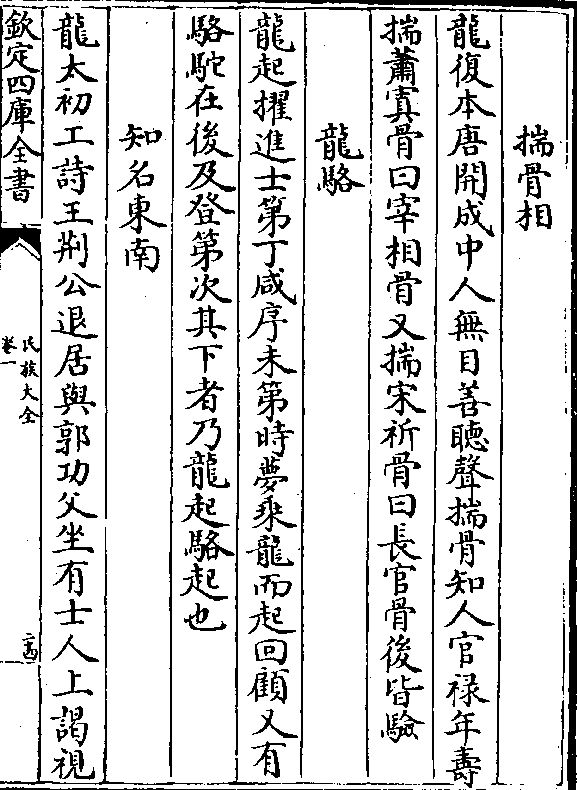 揣骨相
龍復本唐開成中人無目善聽聲揣骨知人官禄年壽
揣蕭寘骨曰宰相骨又揣宋祈骨曰長官骨後皆驗
龍駱
龍起擢進士第丁咸序未第時夢乗龍而起回顧又有
駱駝在後及登第次其下者乃龍起駱起也
知名東南
龍太初工詩王荆公退居與郭功父坐有士人上謁視
欽定四庫全書
氏族大全
卷一